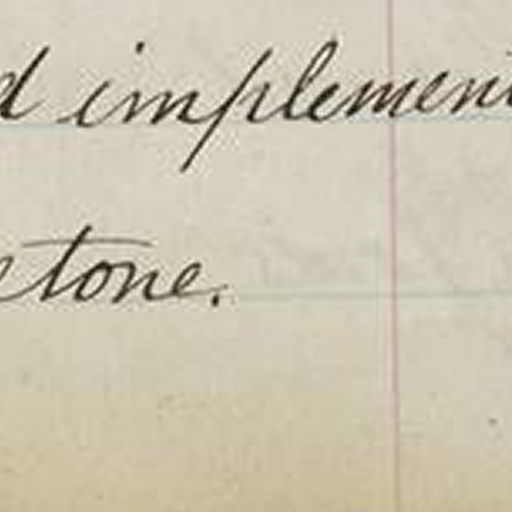 d implement
stone.